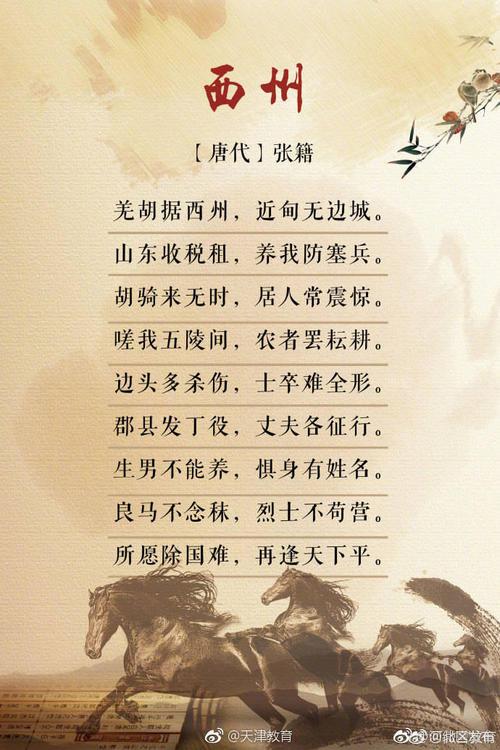 西州
【唐代】张籍
羌胡据西州，近甸无边城。
山东收税租，养我防塞兵。
胡骑来无时，居人常震惊。
嗟我五陵间，农者罢耘耕。
边头多杀伤，士卒难全形。
郡县发丁役，丈夫各征行。
生男不能养，惧身有姓名。
良马不念秣，烈士不苟营。
所愿除国难，再逢天下平。
@天津教育